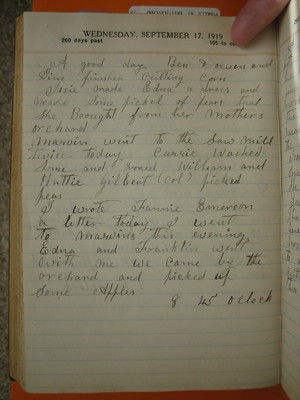 WEDNESDAY, SEPTEMBER 17, 1919
260 days past
105 to
A good day Ben Dowou and
finished Cutting Corn
Josie made Edna a dress and
made some pickel of pears that
she Brought from her Mothers
orchard
Marvin went to the Saw mill
twice today Carrie Washed
Some and Ironed William and
Hattie Gilbert (Col) picked
peas
I wrote Fannie Emerson
a letter today I went
to Marvins this evening
Edna and Franklin went
with me we came by the
orchard and picked up
some Apples
8 45 oclock